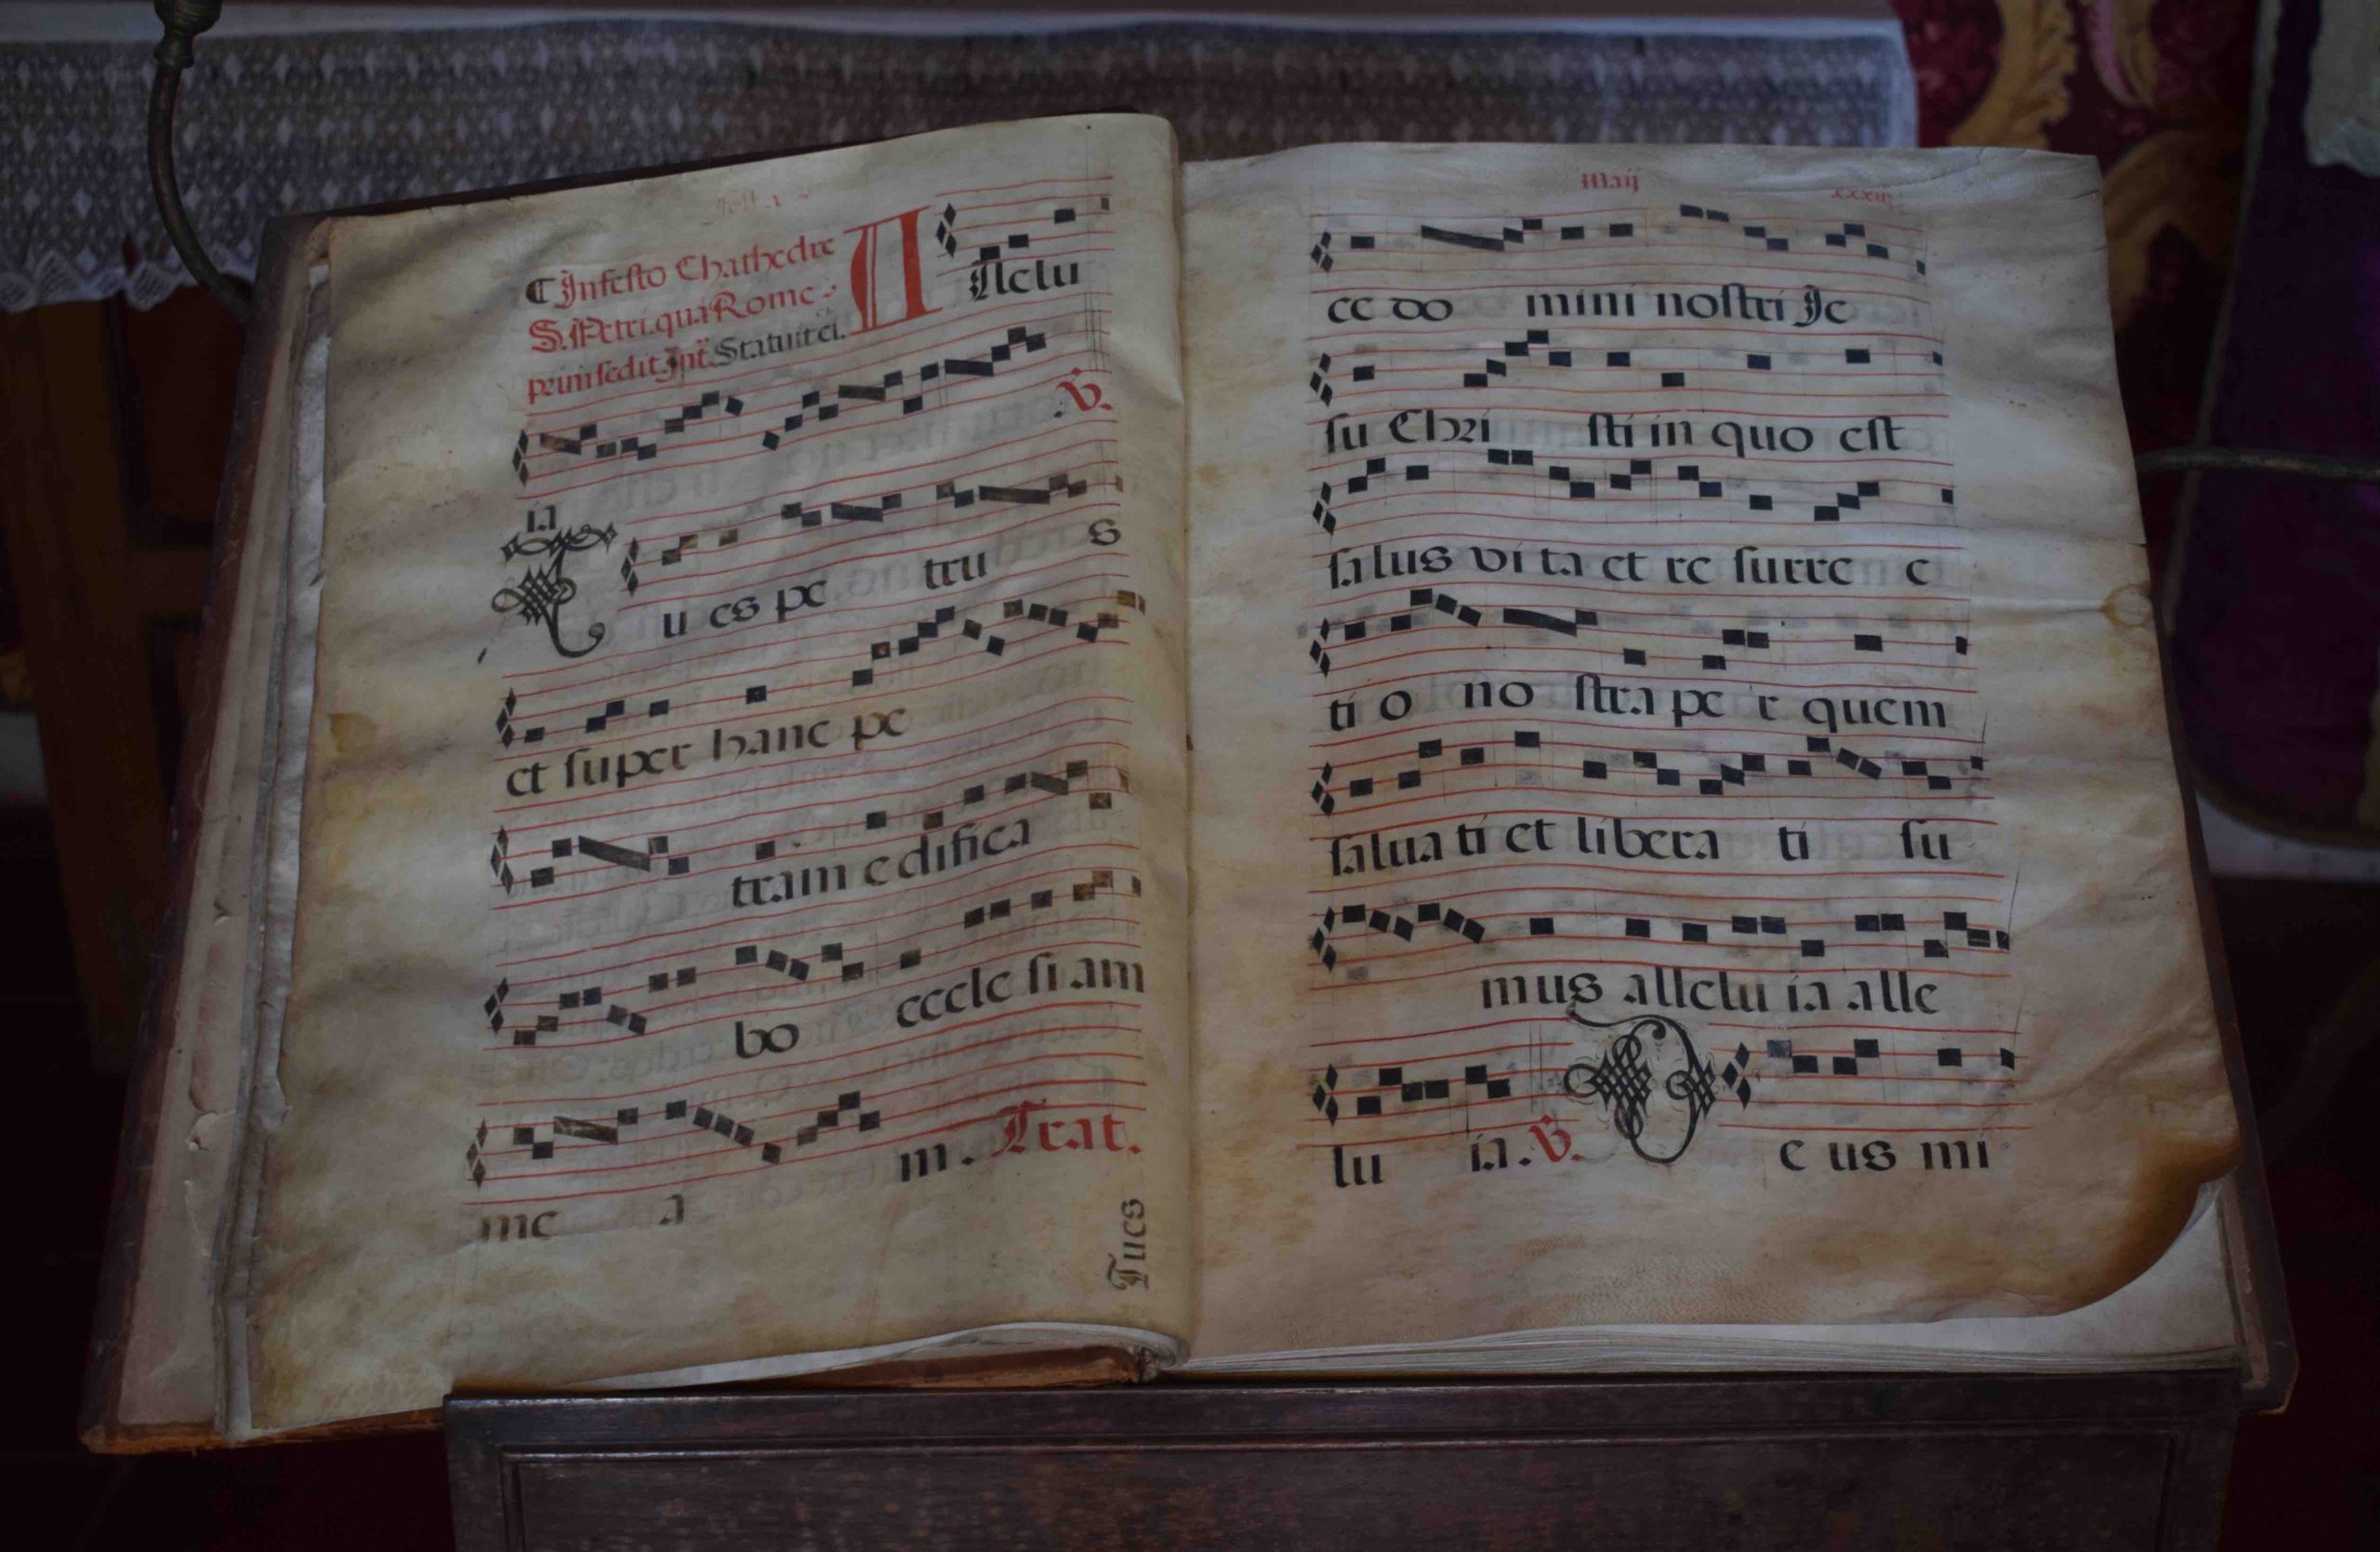 In festo Chathedre
S. Petri. qua Rome
prim sedit. Int. Statuit ei.
A llelu
ia ℣.
T u es pe tru s
et super hanc pe
tram edifica
bo eccle si am
me a m. Trat.
Tues
Maij
ce do mini nostri Je
su Chri sti in quo est
salus vi ta et re surre c
ti o no stra pe r quem
salua ti et libera ti su
mus allelu ia alle
lu ia. ℣. D e us mi